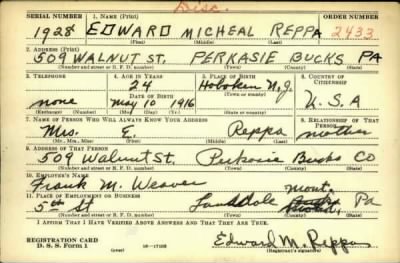 Disc.
SERIAL NUMBER 1. NAME (Print) ORDER NUMBER
1928 EDWARD MICHEAL REPPA 2433
(First) (Middle) (Last)
2. ADDRESS (Print)
509 WALNUT ST. PERKASIE BUCKS PA
(Number and street or R. F. D. number) (Town) (County) (State)
3. TELEPHONE 4. AGE IN YEARS 5. PLACE OF BIRTH 6. COUNTRY OF CITIZENSHIP
24 Hoboken N.J.
DATE OF BIRTH (Town or county)
none May 10 1916 U.S.A
(Exchange) (Number) (Mo.) (Day) (Yr.) (State or country)
7. NAME OF PERSON WHO WILL ALWAYS KNOW YOUR ADDRESS 8. RELATIONSHIP OF THAT PERSON
Mrs. E. Reppa mother
(Mr., Mrs., Miss) (First) (Middle) (Last)
9. ADDRESS OF THAT PERSON
509 Walnut St. Perkasie Bucks Co
(Number and street or R. F. D. number) (Town) (County) (State)
10. EMPLOYER'S NAME
Frank M. Weaver
11. PLACE OF EMPLOYMENT OR BUSINESS Mont.
5th St Lansdale Pa
(Number and street or R. F. D. number) (Town) (County) (State)
I AFFIRM THAT I HAVE VERIFIED ABOVE ANSWERS AND THAT THEY ARE TRUE.
REGISTRATION CARD
D. S. S. Form 1 (over) 16—17105 Edward M. Reppa